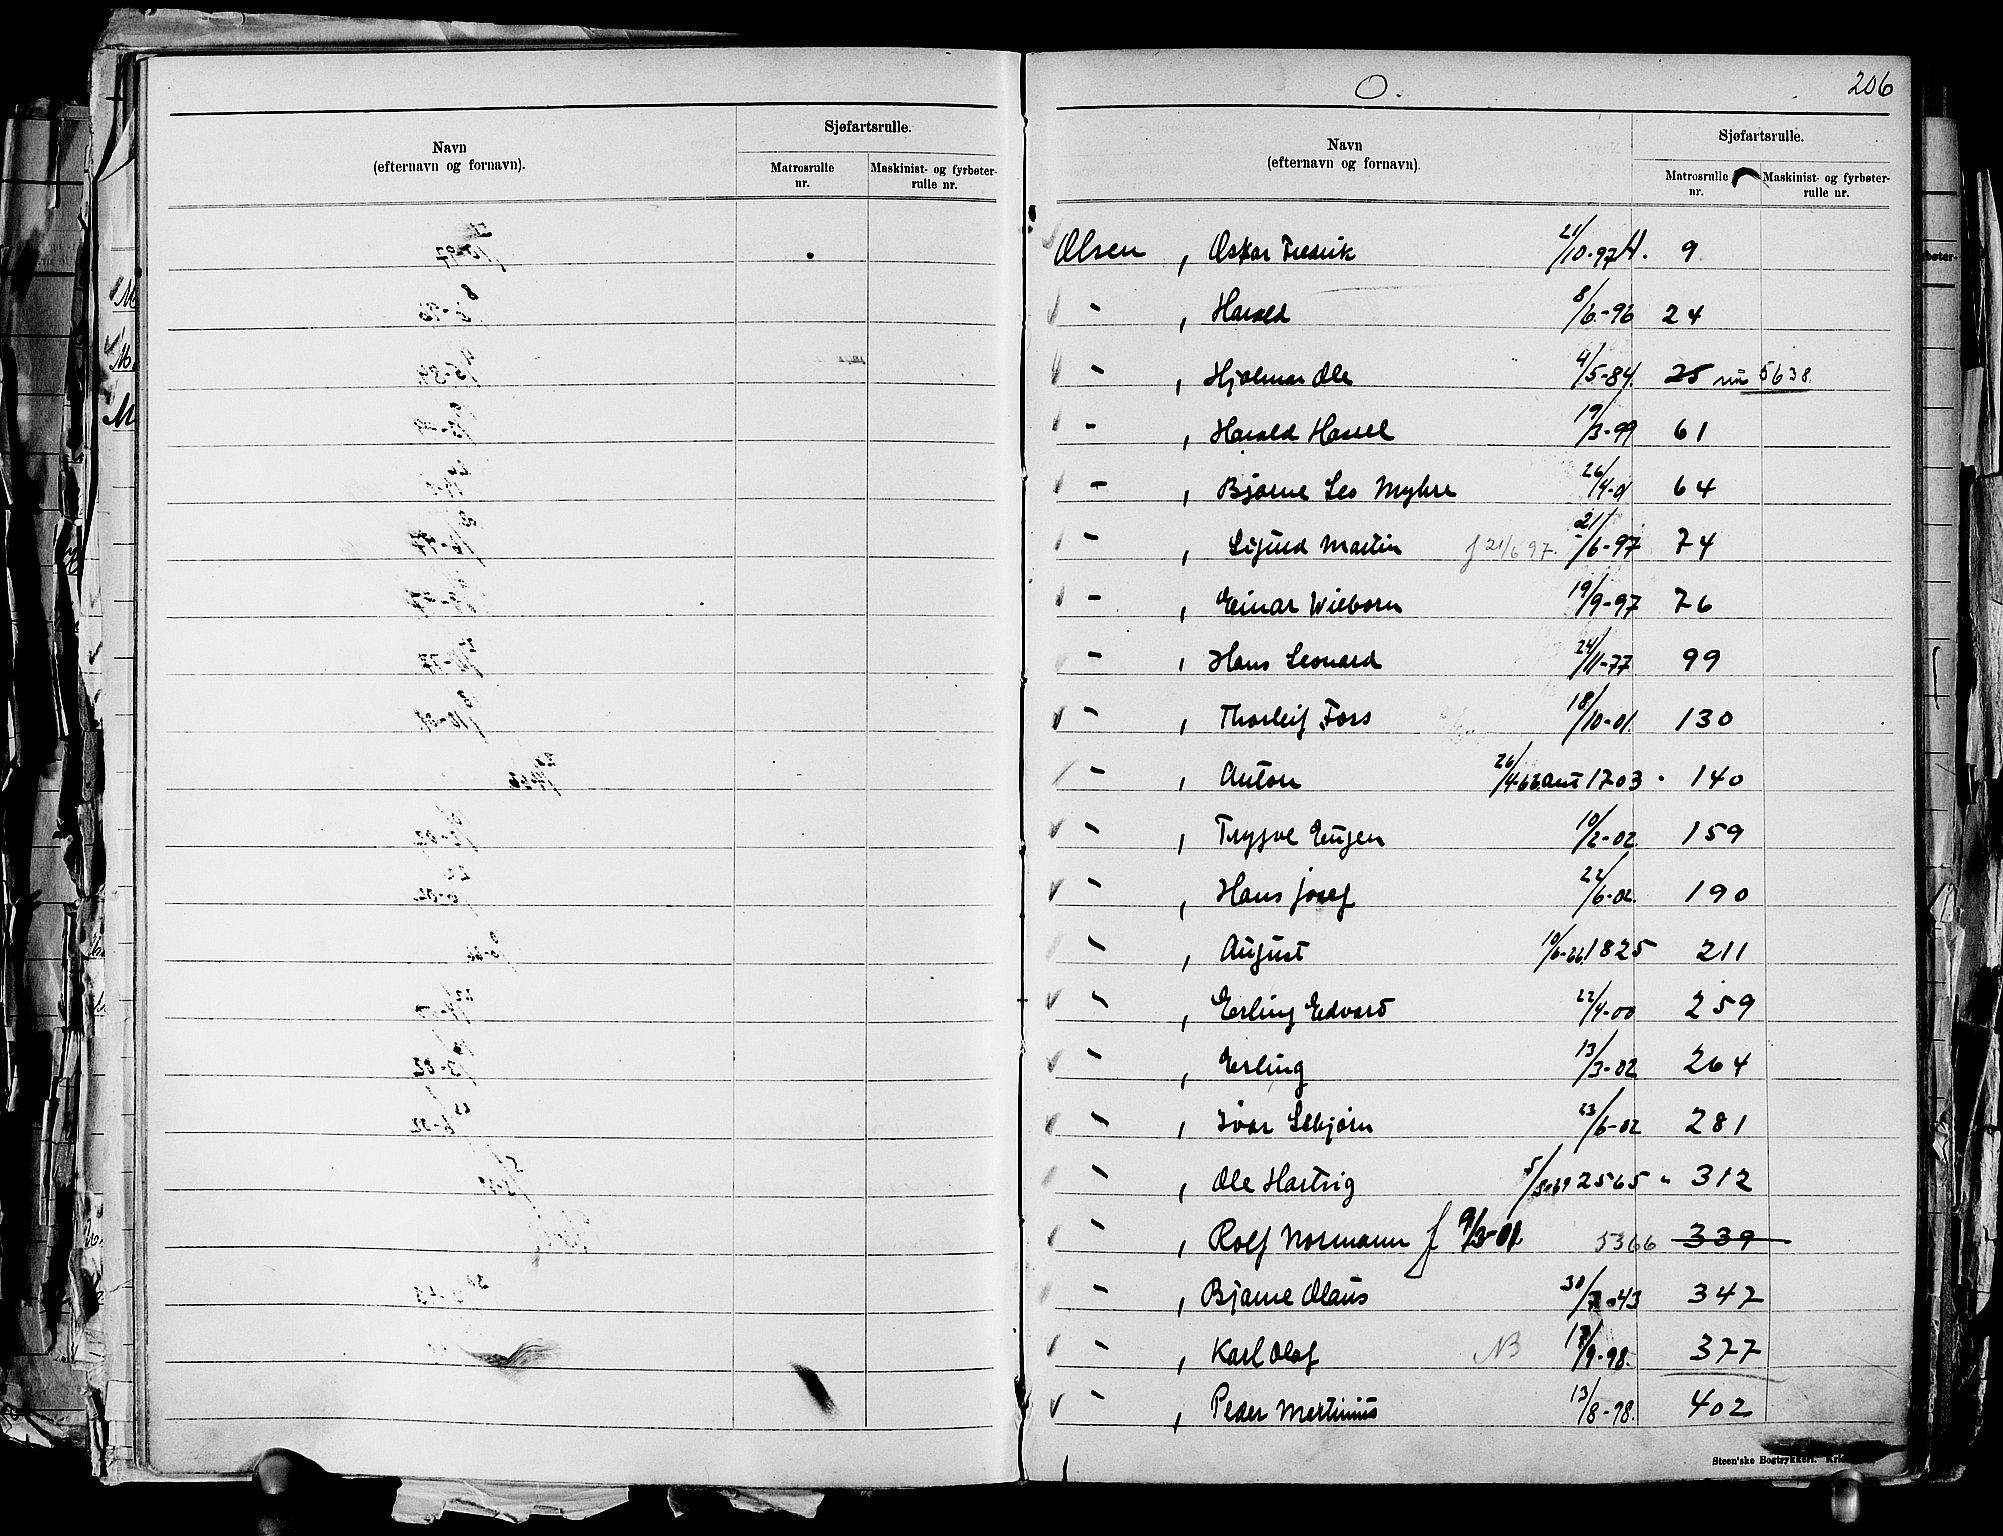 Navn
(efternavn og fornavn).
Sjøfartsrulle.
Matrosrulle
nr.
Maskinist- og fyrbøter-
rulle nr.
O.
206
Navn
(efternavn og fornavn).
Sjøfartsrulle.
Matrosrulle
nr.
Maskinist- og fyrbøter-
rulle nr.
Olsen , Oskar Fredrik 21/10-97 A. 9
" , Harald 8/6-96 24
" , Hjalmar Ole 4/5-84. 25 5638.
" , Harald Hassel 19/3-99 61
" , Bjarne Leo Myhre 26/4-01 64
" , Sigurd Martin f 21/6 97. 21/6-97 74
" , Einar Wieborn 19/9-97 76
" , Hans Leonard 24/11-77 99
" , Thorleif Fors 18/10-01. 130
" , Anton 26/4-66. 1703 " 140
" , Trygve Eugen 10/2-02. 159
" , Hans Josef 22/6-02. 190
" , August 10/6-66. 1825 211
" , Erling Edvard 22/4-00 259
" , Erling 13/3-02 264
" , Ivar Lebjørn 23/6-02 281
" , Ole Hartvig 5/3-69 2565 " 312
" , Rolf Normann f 9/3-01. 5366 339
" , Bjarne Olaus 30/7-43 347
" , Karl Olaf NB 17/9-98. 377
" , Peder Martinius 13/8-98. 402
Steen'ske Bogtrykkeri.